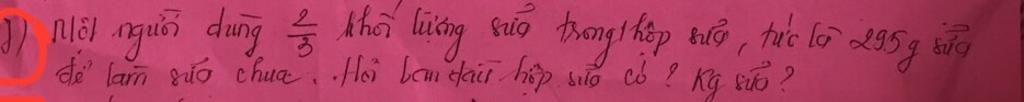 1) Một người dùng 2/3 khối lượng sữa trong 1 hộp sữa, tức là 295g sữa
để làm sữa chua. Hỏi ban đầu hộp sữa có ? Kg sữa ?